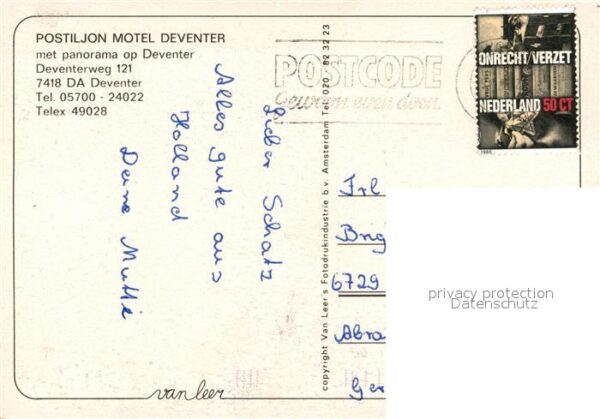 POSTILJON MOTEL DEVENTER
met panorama op Deventer
Deventerweg 121
7418 DA Deventer
Tel. 05700 - 24022
Telex 49028
Lieber Schatz
Alles gute aus
Holland
Deine Mutti
copyright Van Leer's Fotodrukindustrie b.v. Amsterdam Tel: 020 - 82 32 23
van leer
POSTCODE
Gewoon even doen.
ONRECHT/VERZET
NEDERLAND 50 CT
1985
Frl
Brig
6729
Abra
Ger
privacy protection
Datenschutz